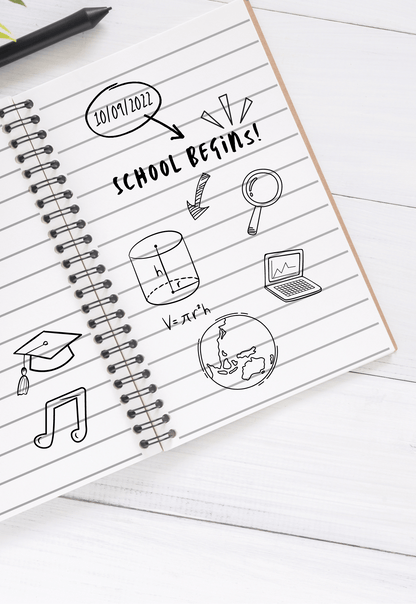 10/09/2022
SCHOOL BEGINS!
h
r
V=πr²h